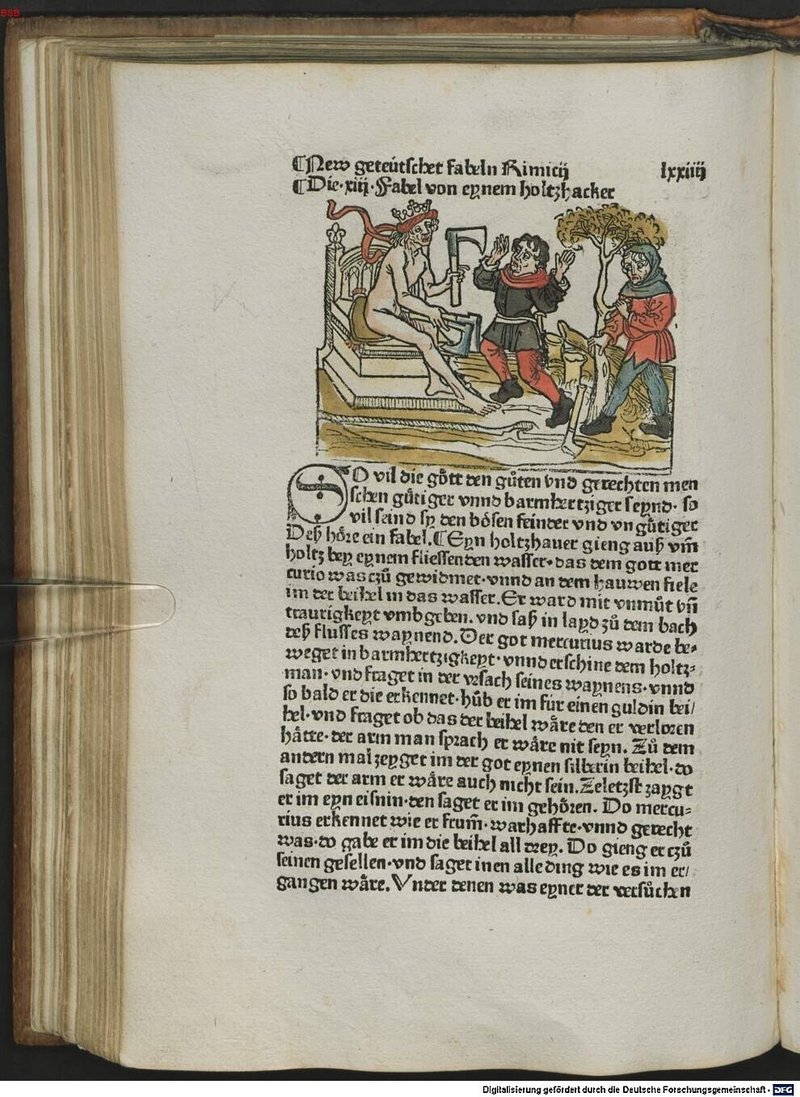 BSB
⸿New geteütschet fabeln Rimicij lxxiiij
⸿Die·xiij·Fabel von eynem holtzhacker
SO vil die goͤtt den guͤten vnd gerechten men
schen guͤtiger vnnd barmhertziger seynd· so
vil seind sy den boͤsen feinder vnd vnguͤtiger
Deß hoͤre ein fabel.⸿Eyn holtzhauer gieng auß vm̄
holtz bey eynem fliessenden wasser·das dem gott mer
curio was czuͦ gewidmet·vnnd an dem hauwen fiele
im der beihel in das wasser.Er ward mit vnmuͦt vn̄
traurigkeyt vmbgeben. vnd saß in layd zuͦ dem bach
deß flusses waynend.Der got mercurius warde be⸗
weget in barmhertzigkeyt·vnnd erschine dem holtz⸗
man·vnd fraget in der vrsach seines waynens·vnnd
so bald er die erkennet·huͦb er im für einen guldin bei/
hel·vnd fraget ob das der beihel waͤre den er verloren
haͤtte·der arm man sprach er waͤre nit seyn. Zuͦ dem
andern mal zeyget im der got eynen silberin beihel·do
saget der arm er waͤre auch nicht sein.Zeletzst zaygt
er im eyn eisnin·den saget er im gehoͤren. Do mercu⸗
rius erkennet wie er frum̄·warhaffte·vnnd gerecht
was·do gabe er im die beihel all drey. Do gieng er czuͦ
seinen gesellen·vnd saget inen alle ding wie es im er/
gangen waͤre. Vnder denen was eyner der versuͦchen
Digitalisierung gefördert durch die Deutsche Forschungsgemeinschaft - DFG